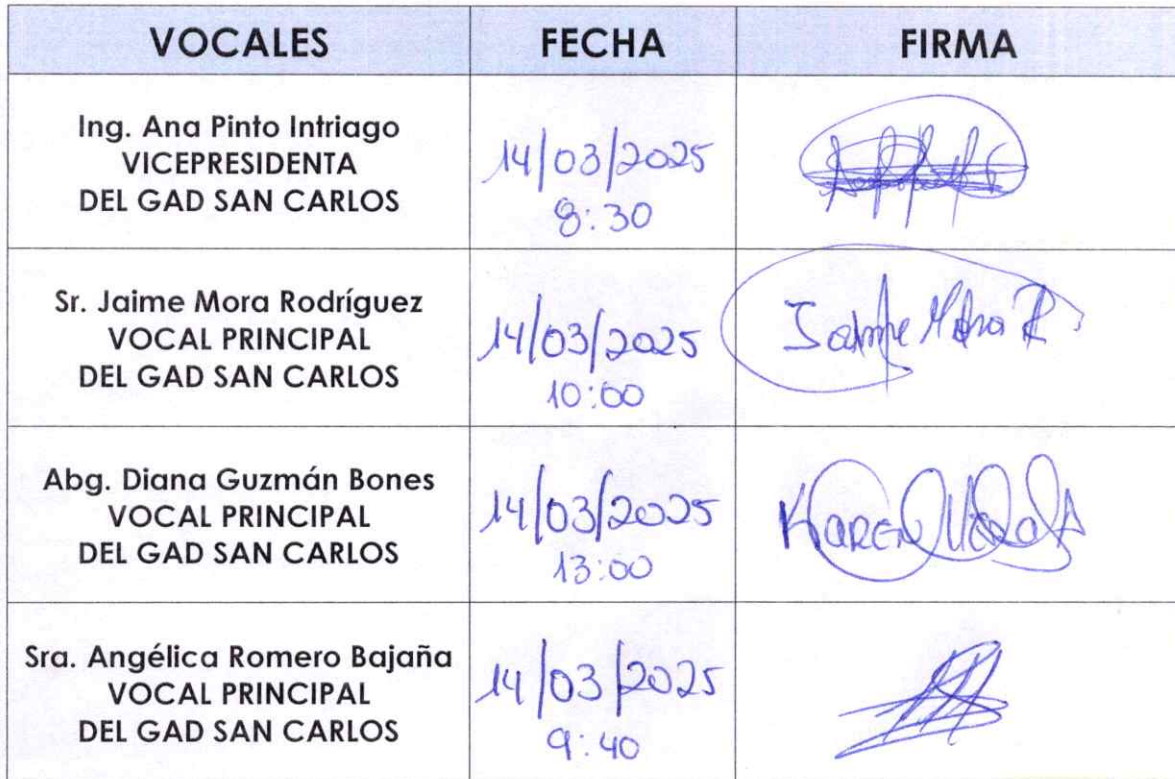 VOCALES FECHA FIRMA
Ing. Ana Pinto Intriago
VICEPRESIDENTA
DEL GAD SAN CARLOS
14/03/2025
8:30
Sr. Jaime Mora Rodríguez
VOCAL PRINCIPAL
DEL GAD SAN CARLOS
14/03/2025
10:00
Jaime Mora R.
Abg. Diana Guzmán Bones
VOCAL PRINCIPAL
DEL GAD SAN CARLOS
14/03/2025
13:00
KAREN
Sra. Angélica Romero Bajaña
VOCAL PRINCIPAL
DEL GAD SAN CARLOS
14/03/2025
9:40